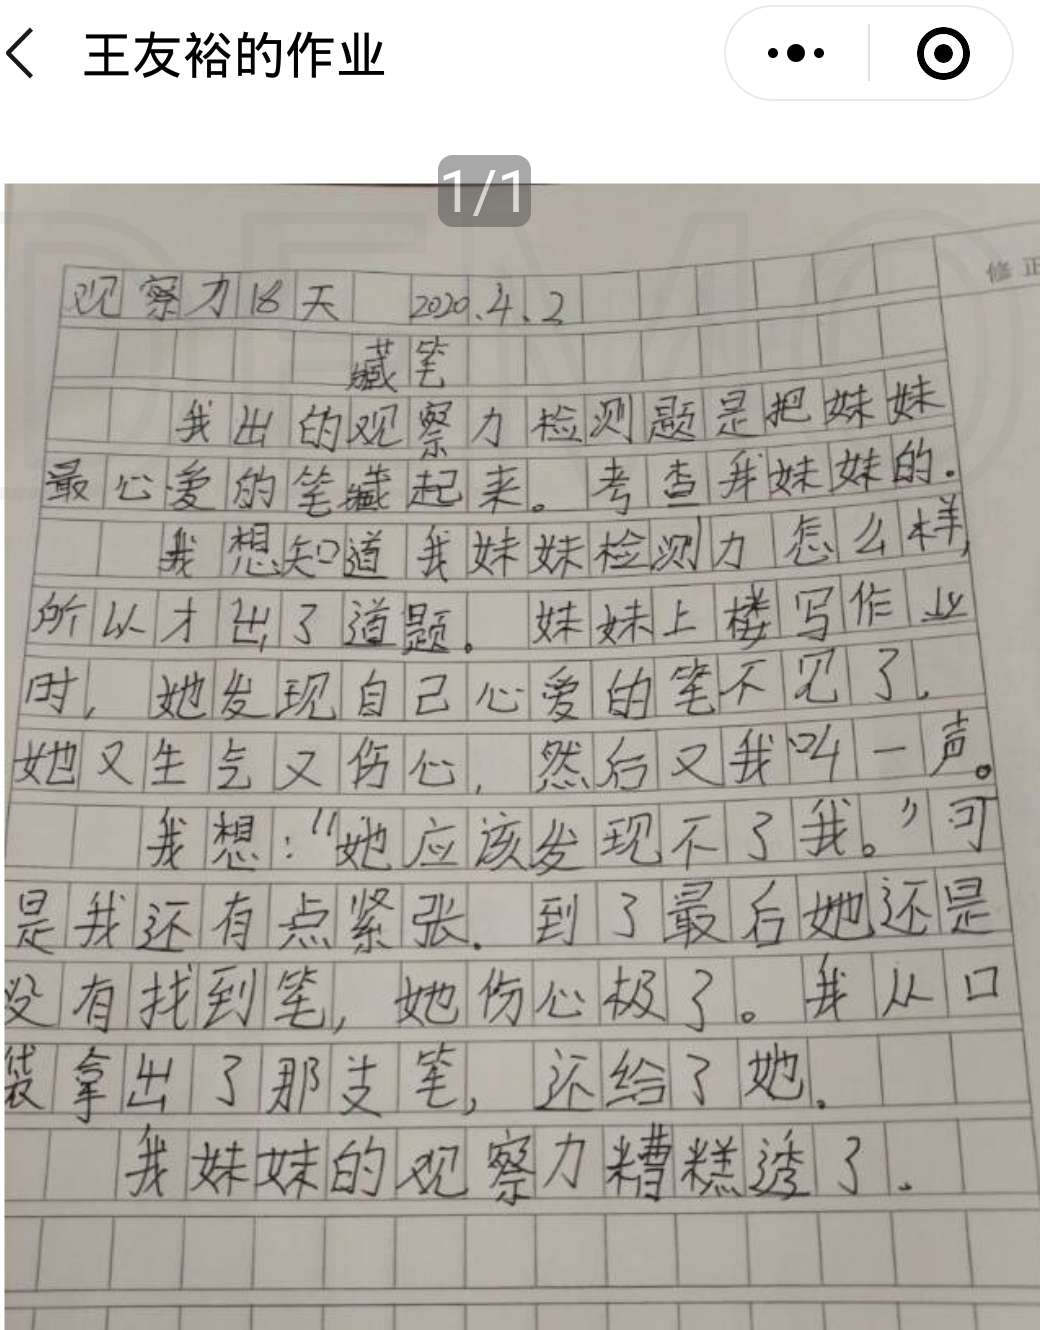 王友裕的作业
1/1
修正
观察力18天 2020.4.2
藏笔
我出的观察力检测题是把妹妹
最心爱的笔藏起来。考查我妹妹的.
我想知道我妹妹检测力怎么样,
所以才出了道题。妹妹上楼写作业
时,她发现自己心爱的笔不见了.
她又生气又伤心,然后又我叫一声。
我想:“她应该发现不了我。”可
是我还有点紧张.到了最后她还是
没有找到笔,她伤心极了。我从口
袋拿出了那支笔,还给了她.
我妹妹的观察力糟糕透了.